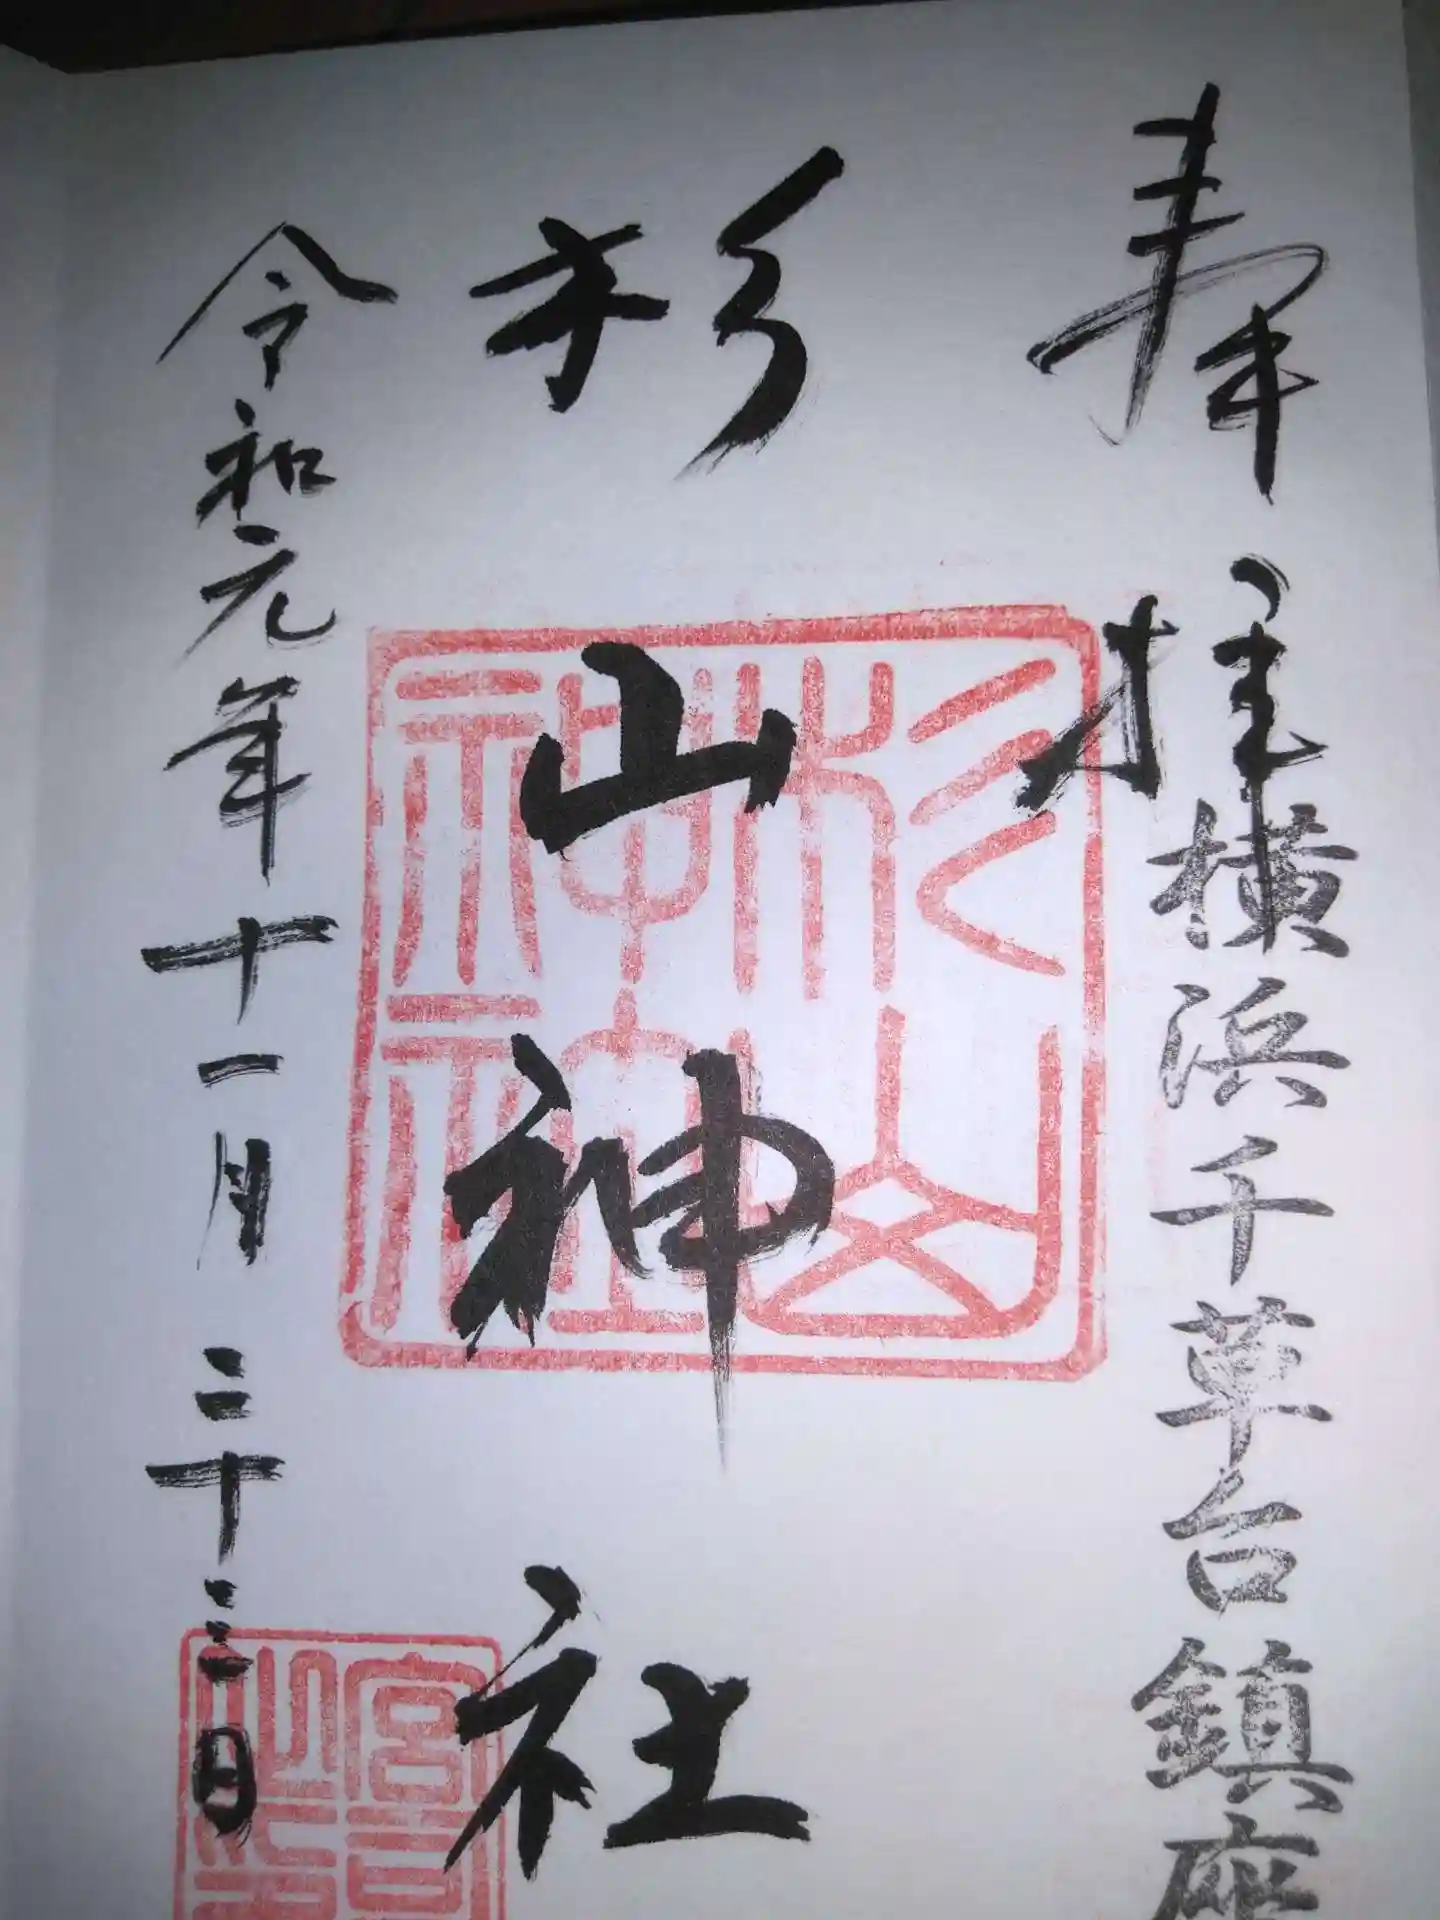 奉拝
横浜千草台鎮座
杉山神社
杉山神社
令和元年十一月二十三日
宮司之印